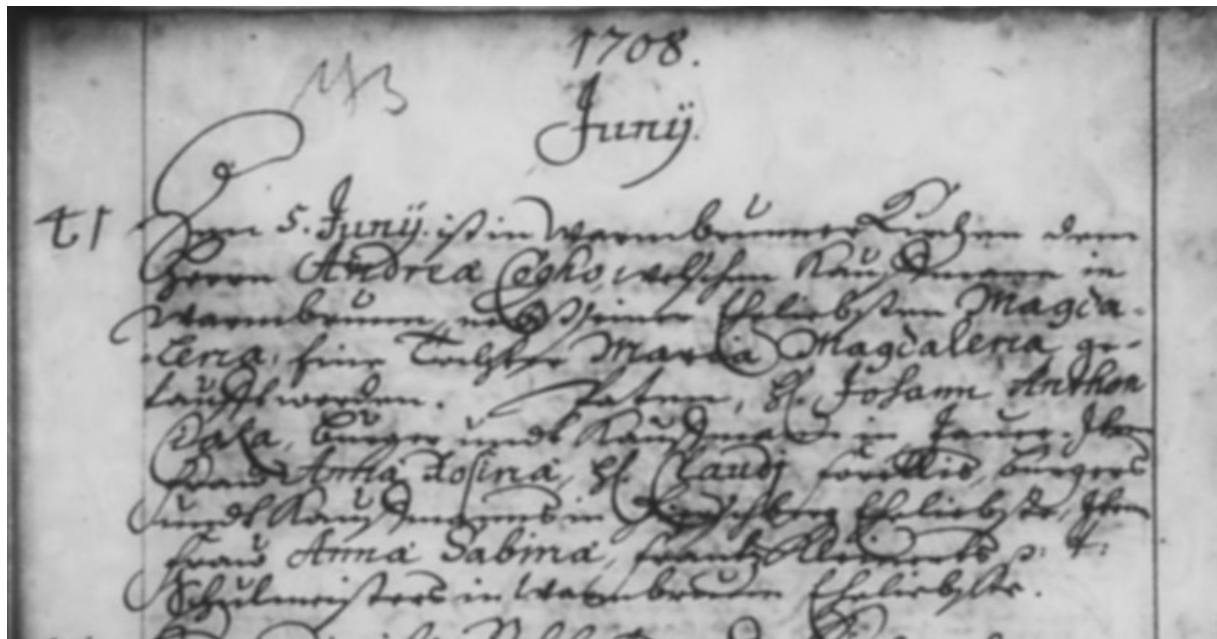 1708.
Junij.
41 Den 5. Junij. ist in Warmbrunner Kirchen dem
Herrn Andrea welschen Kauffmann in
Warmbrunn, nebst seiner Eheliebsten Magda-
lena, eine Maria Magdalena ge-
taufft worden. Paten, H. Johann Anthon
Burger undt Kauffman in Jauer. Item
Frau Anna Rosina, H. Claudj burgers
undt Kauffmanns in Hirschberg Eheliebste, Item
Frau Anna Sabina, Frantz p: t:
Schulmeisters in Warmbrunn Eheliebste.